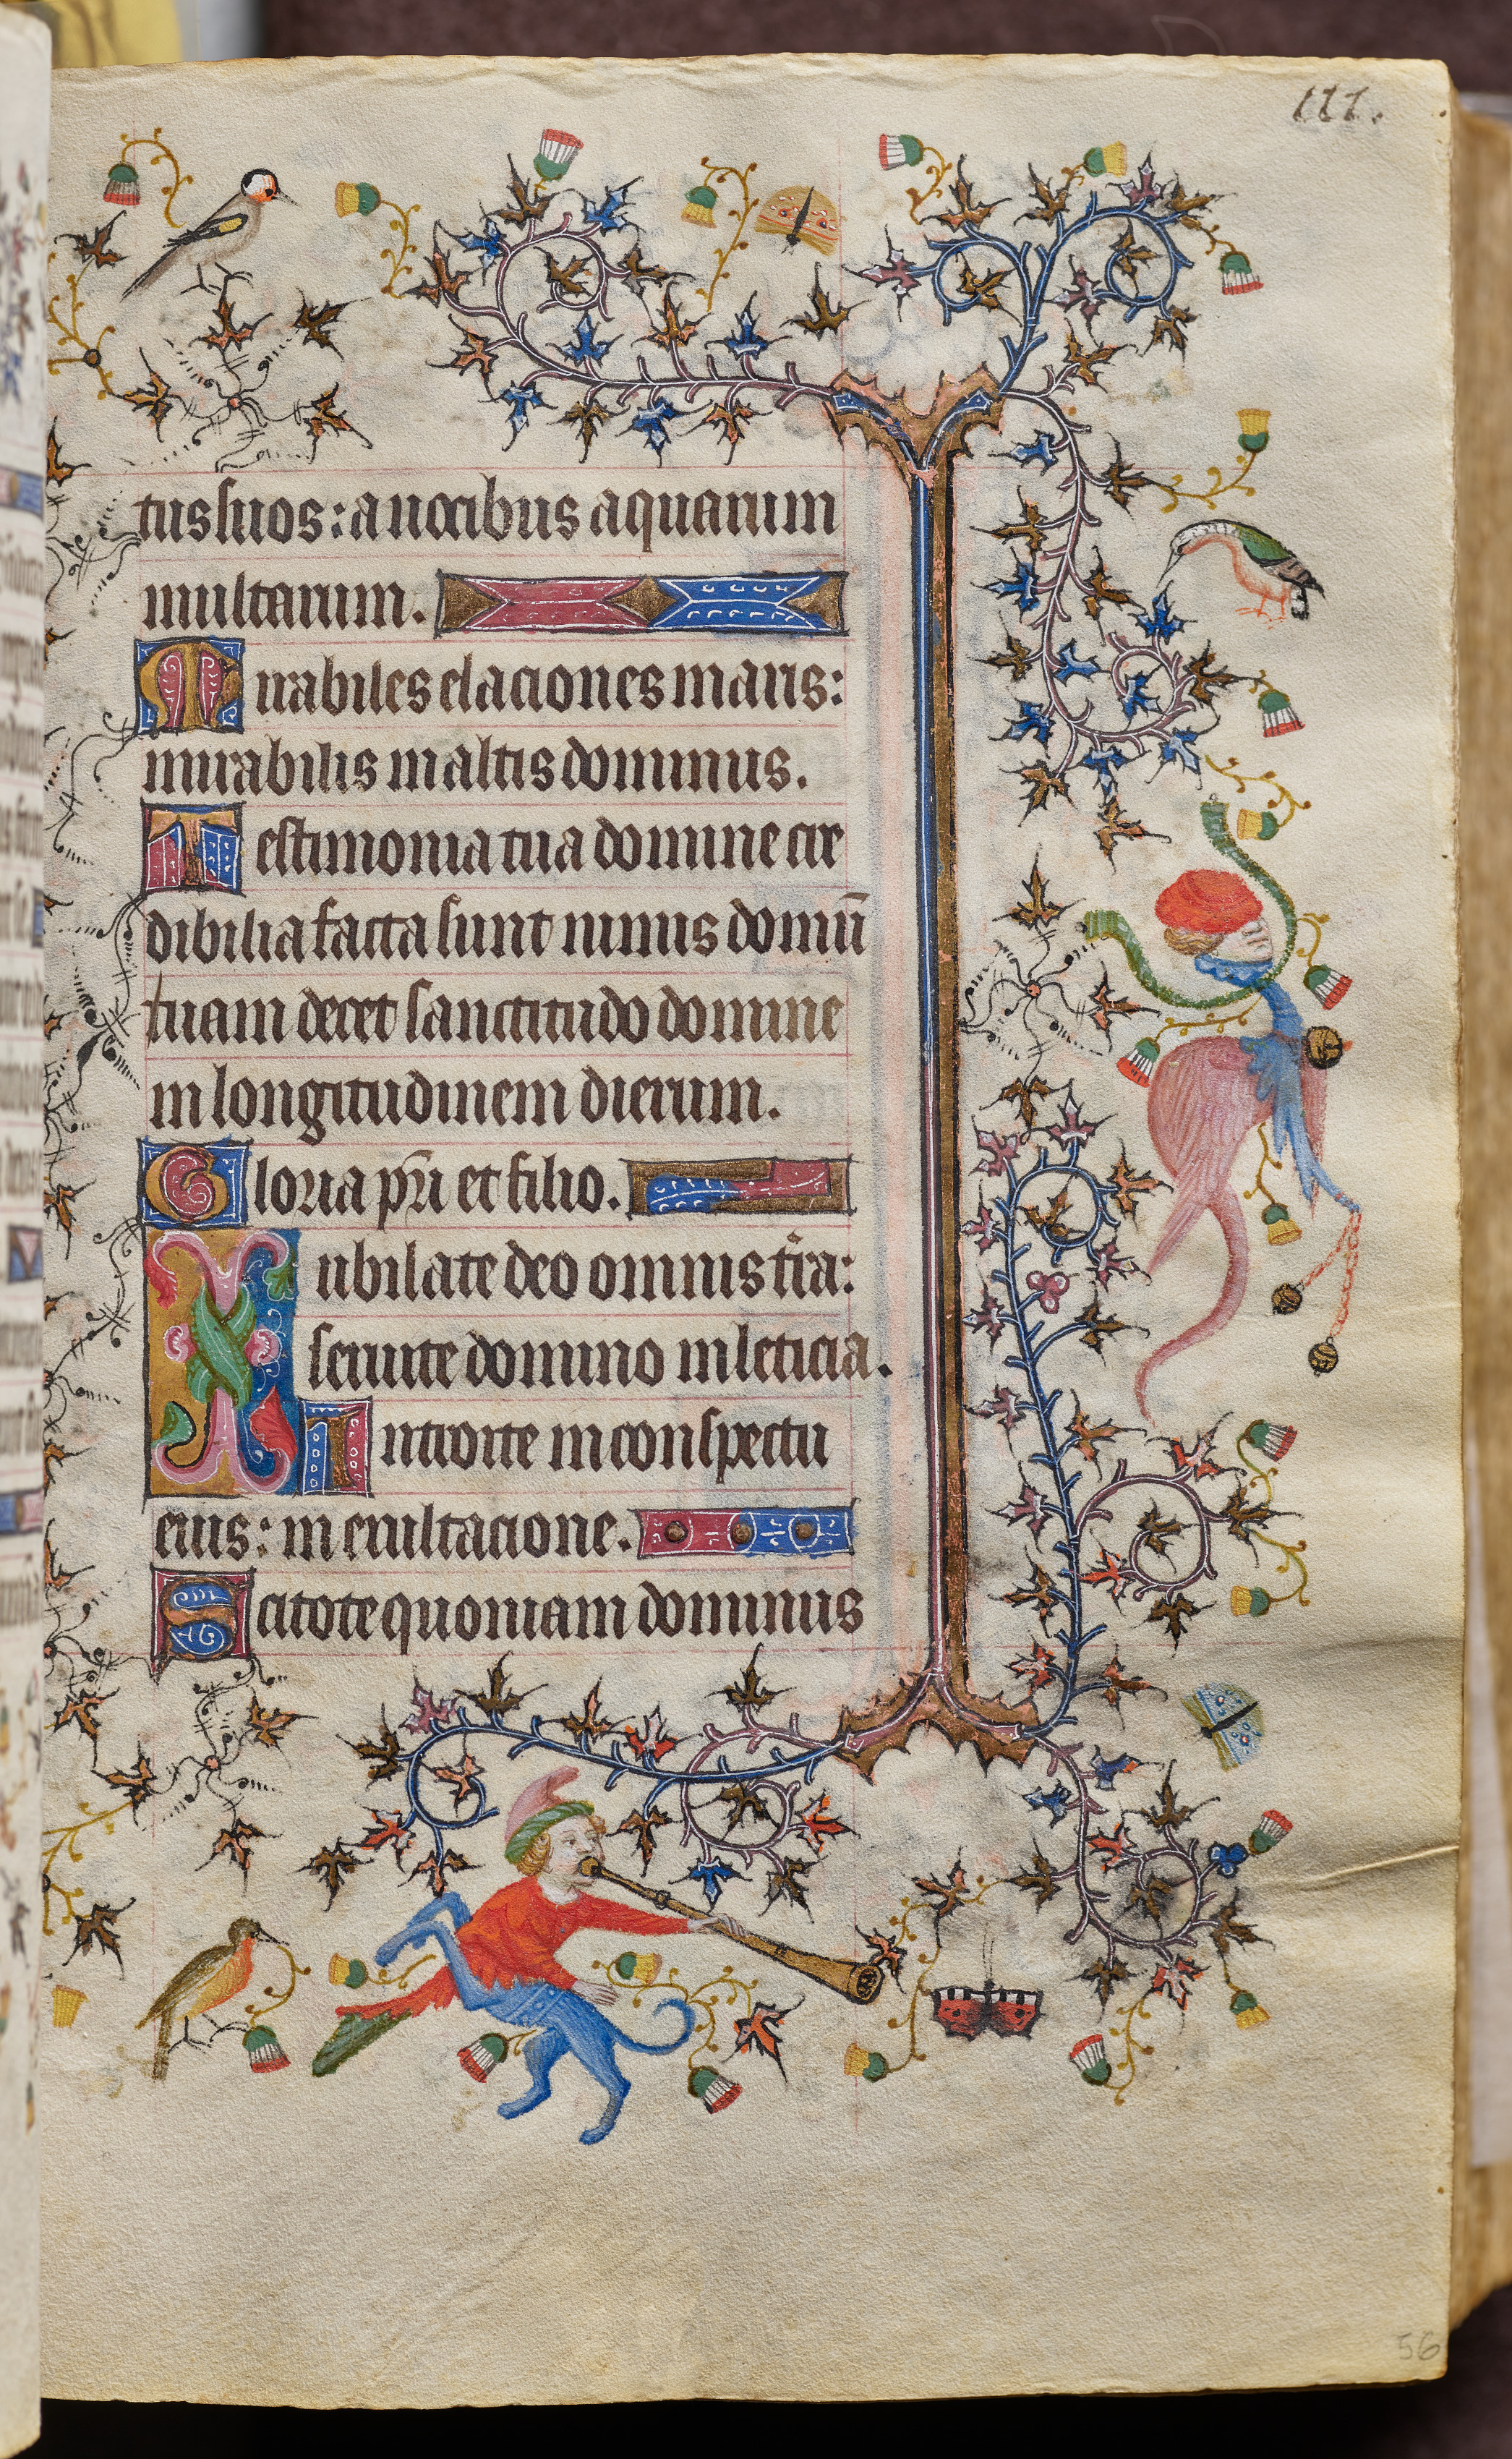 111.
tus suos: a vocibus aquarum
multarum.
Mirabiles elaciones maris:
mirabilis in altis dominus.
Testimonia tua domine cre
dibilia facta sunt nimis domū
tuam decet sanctitudo domine
in longitudinem dierum.
Gloria pr̄i et filio.
Iubilate deo omnis tr̄a:
servite domino in leticia.
Introite in conspectu
eius: in exultacione.
Scitote quoniam dominus
56